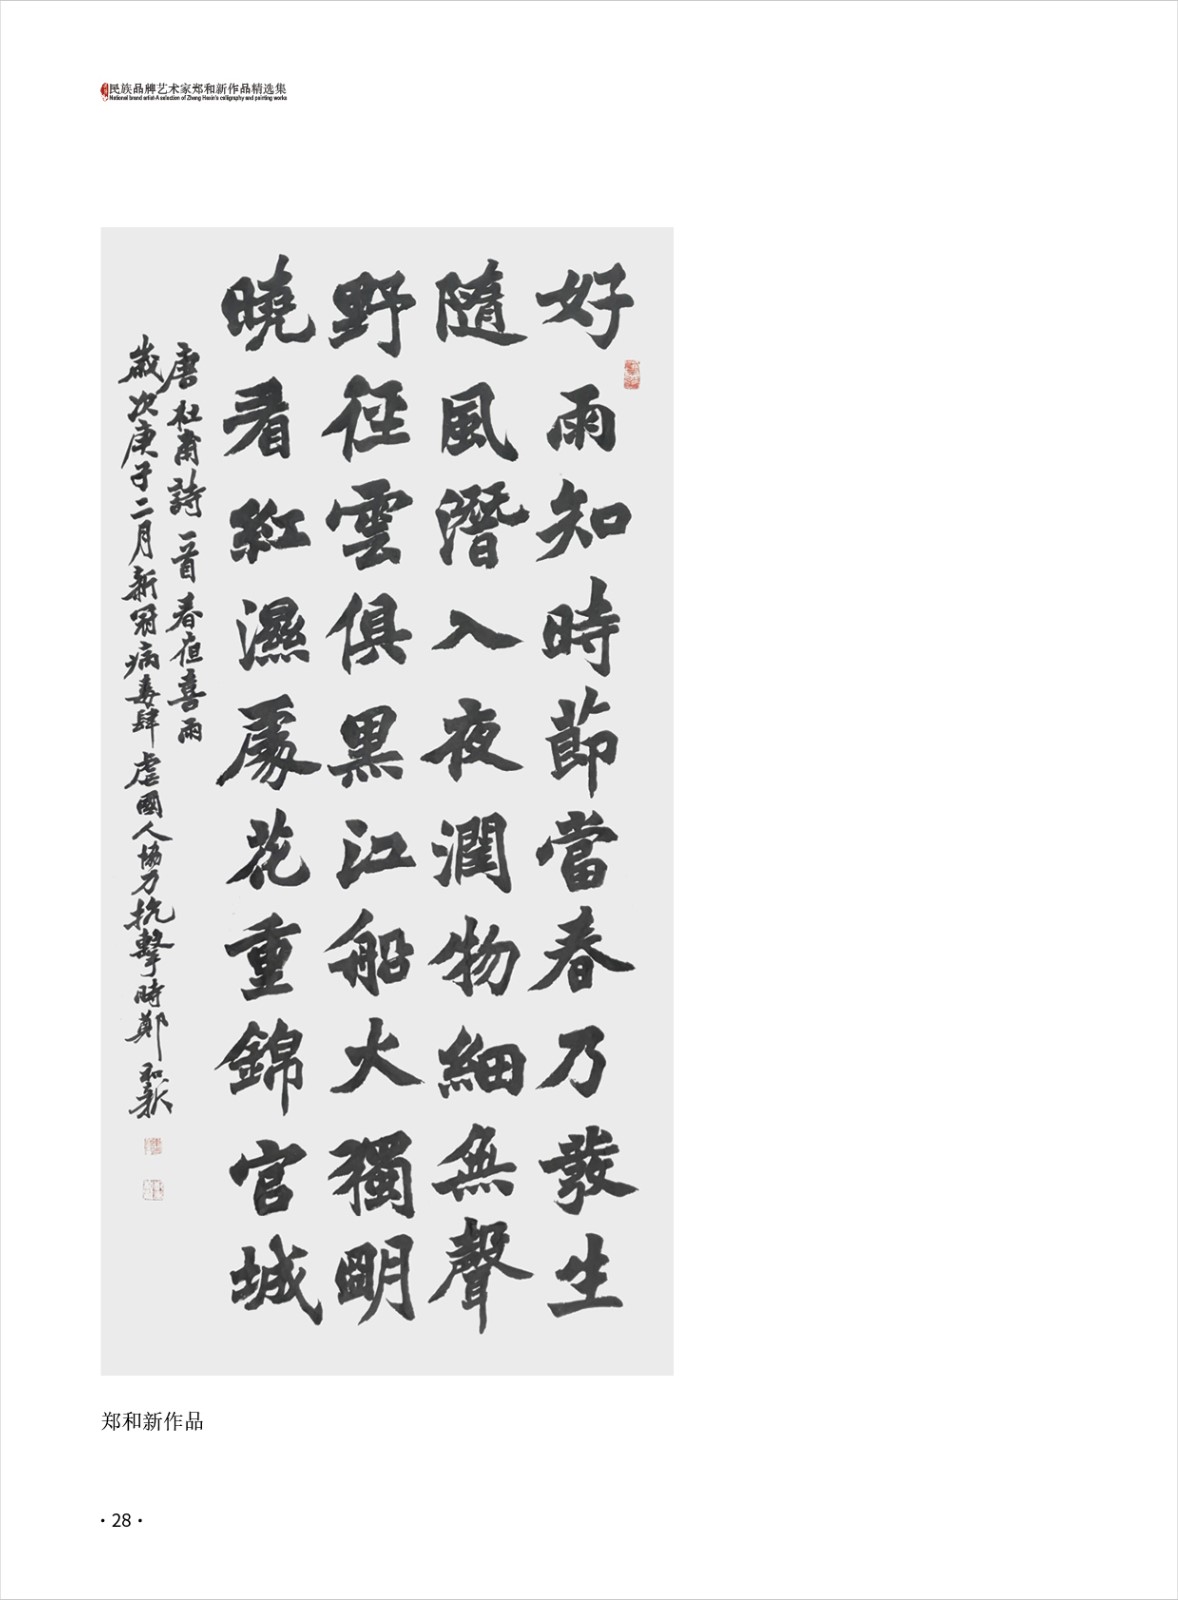 民族品牌艺术家郑和新作品精选集
National brand artist-A selection of Zheng Hexin's calligraphy and painting works
好雨知時節當春乃發生
隨風潛入夜潤物細無聲
野徑雲俱黑江船火獨明
曉看紅濕處花重錦官城
唐杜甫詩一首春夜喜雨
歲次庚子二月新冠病毒肆虐國人協力抗擊時鄭和新
郑和新作品
·28·